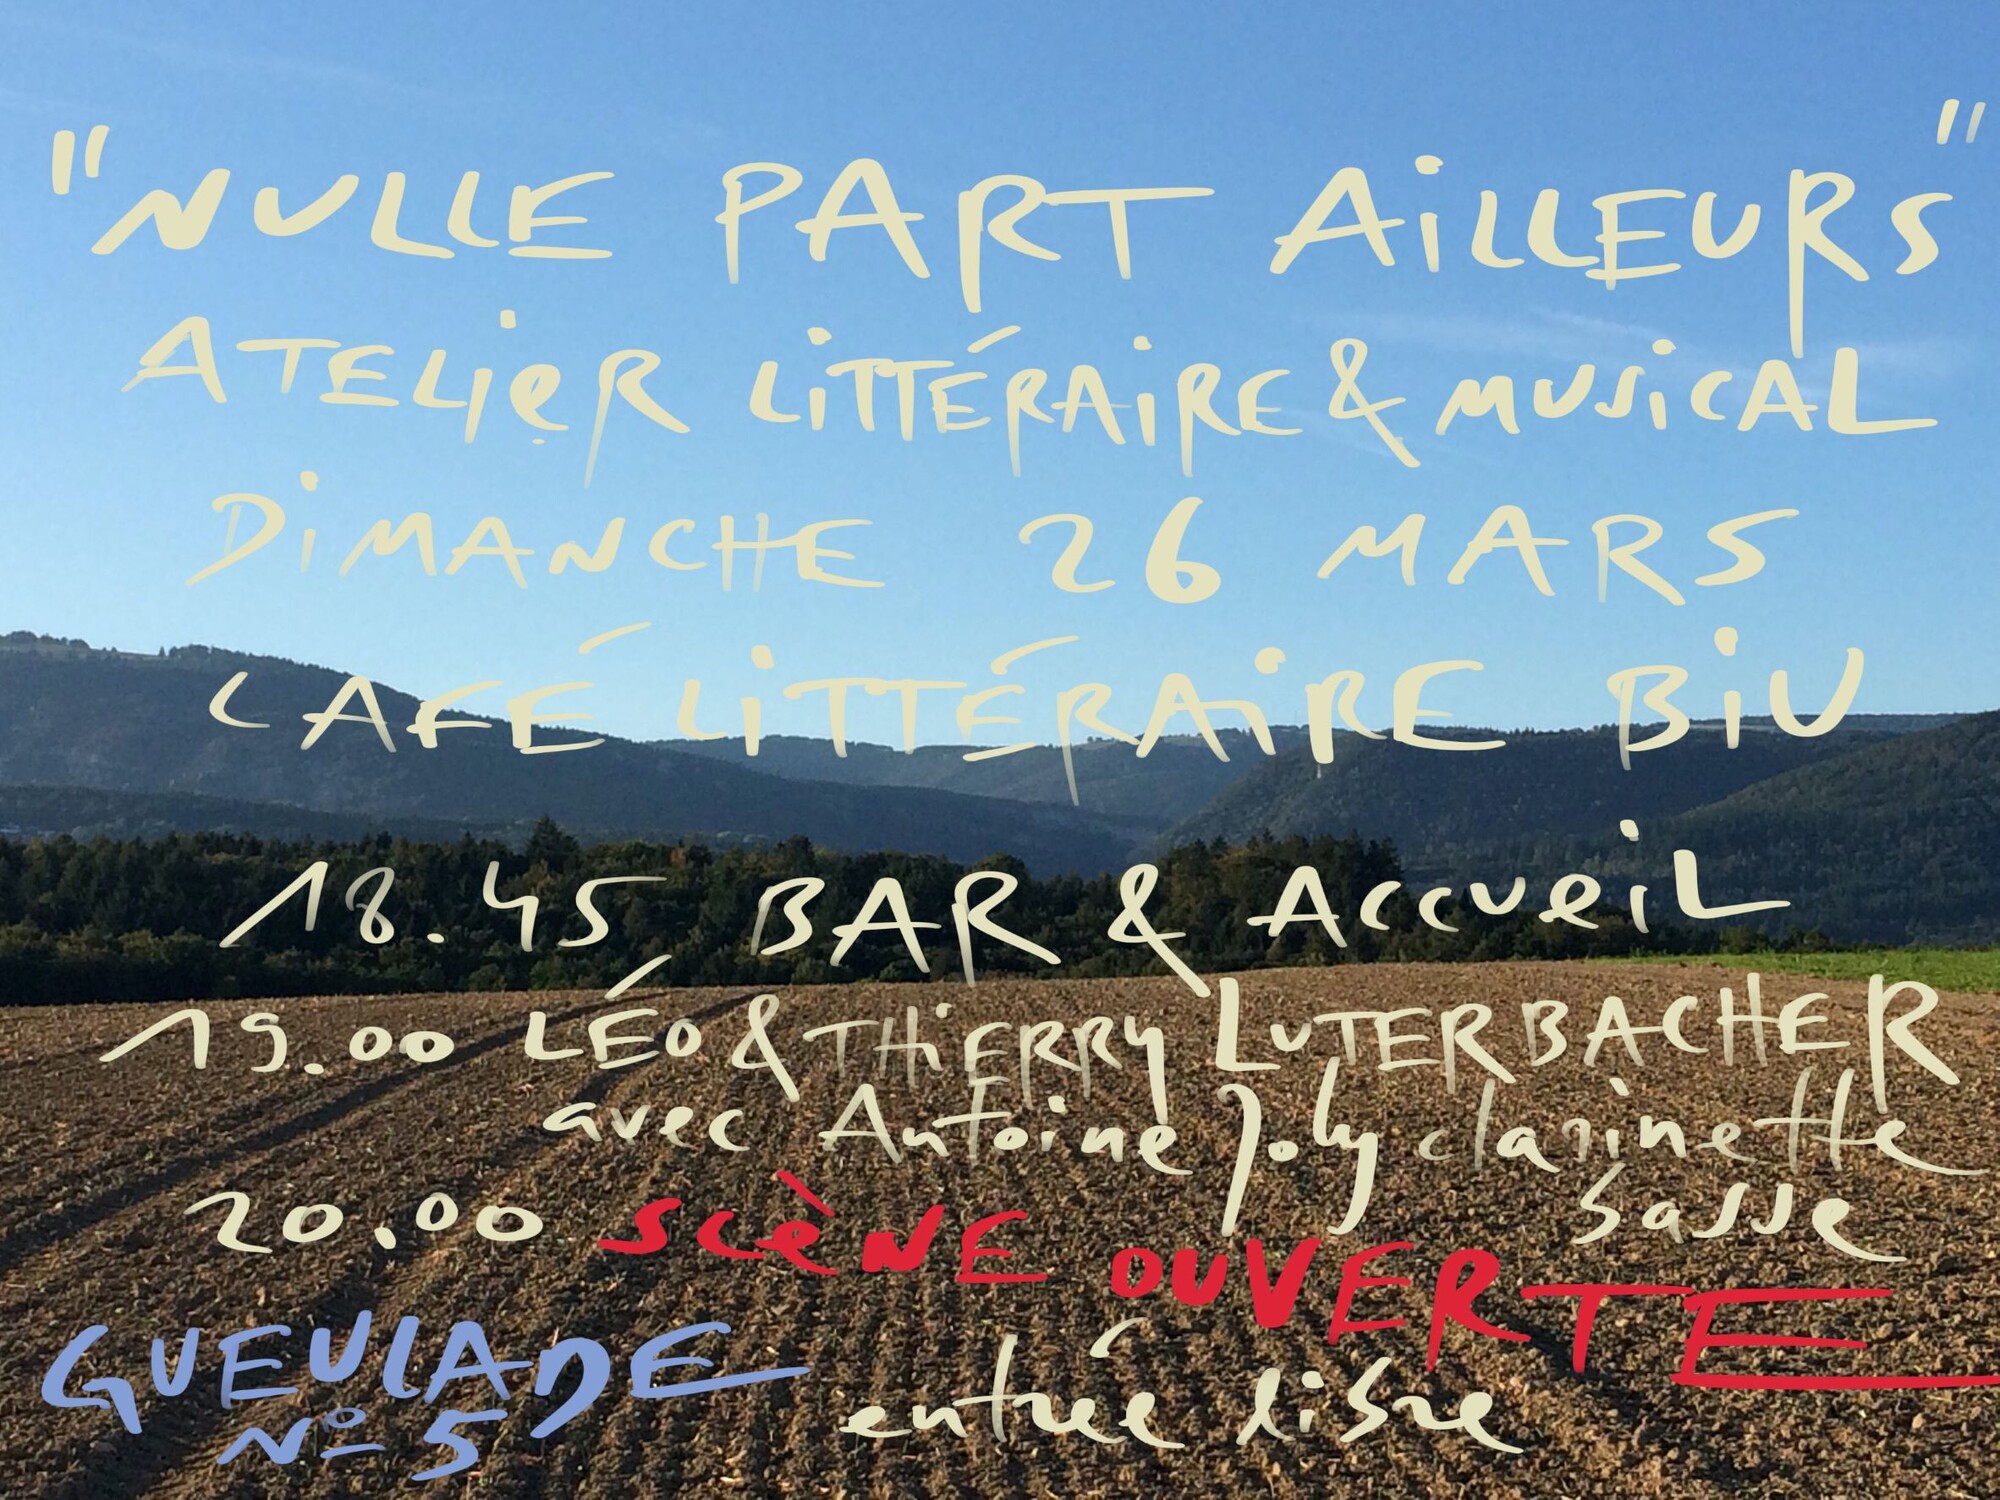 "NULLE PART AILLEURS"
ATELIER LITTÉRAIRE & MUSICAL
DIMANCHE 26 MARS
CAFÉ LITTÉRAIRE BIU
18.45 BAR & ACCUEIL
19.00 LÉO & THIERRY LUTERBACHER
avec Antoine Joly clarinette
basse
20.00 SCÈNE OUVERTE
GUEULADE
No 5
entrée libre